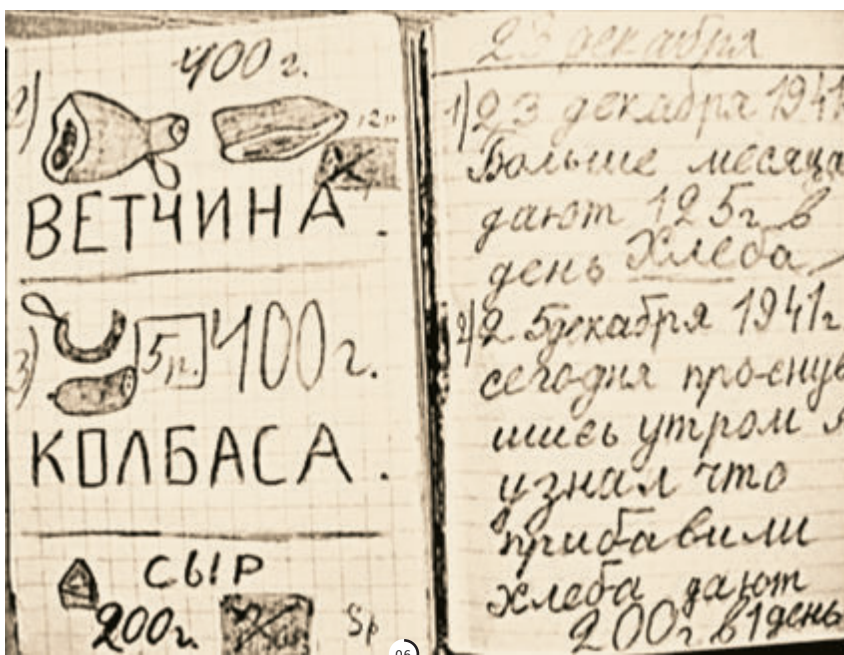 2)
400 г.
ВЕТЧИНА.
3)
5р.
400г.
КОЛБАСА.
СЫР
200г.
5р
23 декабря
1) 23 декабря 1941
Больше месяца
дают 125г в
день хлеба
2) 25декабря 1941г
сегодня проснув
шись утром я
узнал что
прибавили
хлеба дают
200г. в 1 день
96